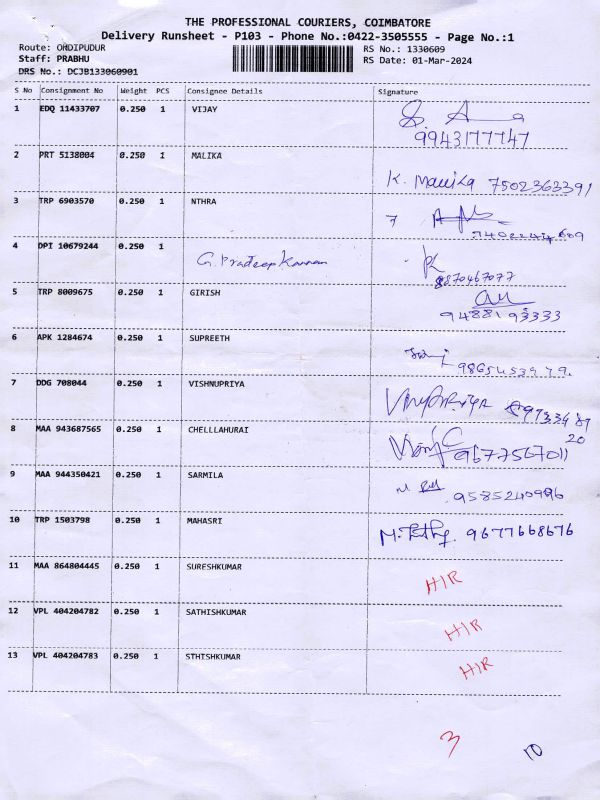 THE PROFESSIONAL COURIERS, COIMBATORE
Delivery Runsheet - P103 - Phone No.:0422-3505555 - Page No.:1
Route: ORDIPUDUR
RS No.: 1330609
Staff: PRABHU
RS Date: 01-Mar-2024
DRS No.: DCJB133060901
S No Consignment No Weight PCS Consignee Details Signature
1 EDQ 11433707 0.250 1 VIJAY
9943177747
2 PRT 5138004 0.250 1 MALIKA
K. Malika 7502363391
3 TRP 6903570 0.250 1 NTHRA
4 DPI 10679244 0.250 1 G. Pradeep Kannan
8870467077
5 TRP 8009675 0.250 1 GIRISH
9488193333
6 APK 1284674 0.250 1 SUPREETH
9865453979.
7 DDG 708044 0.250 1 VISHNUPRIYA
8 MAA 943687565 0.250 1 CHELLLAHURAI
9677567011
9 MAA 944350421 0.250 1 SARMILA
9585240996
10 TRP 1503798 0.250 1 MAHASRI
9677668676
11 MAA 864804445 0.250 1 SURESHKUMAR HIR
12 VPL 404204782 0.250 1 SATHISHKUMAR HIR
13 VPL 404204783 0.250 1 STHISHKUMAR HIR
3 10